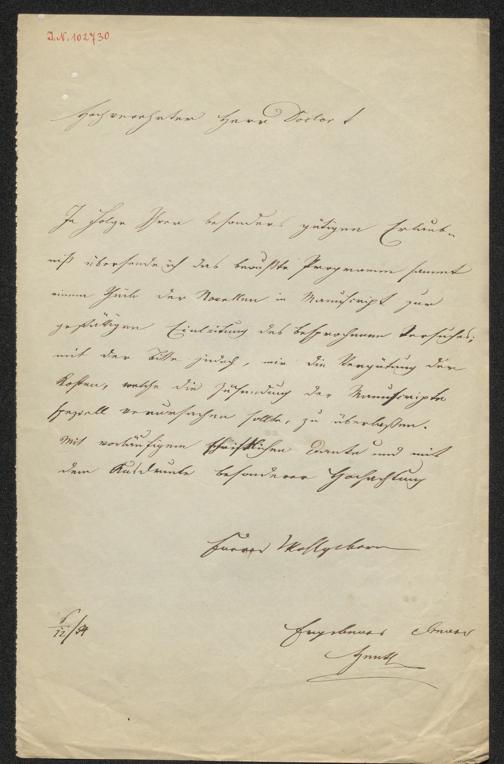 I.N. 102730
Hochverehrter Herr Doctor!
In Folge Ihrer besonders gütigen Erlaub-
niß übersende ich das bewußte Programm sammt
einem Theile der Novellen in Manuscript zur
gefälligen Einleitung des besprochenen Versuches;
mit der Bitte jedoch, mir die Vergütung der
Kosten, welche die Zusendung der Manuscripte
speziell verursachen sollte, zu überlassen.
Mit vorläufigem schriftlichen Danke und mit
dem Ausdrucke besonderer Hochachtung
Euerer Wohlgeboren
/12/54
Ergebener